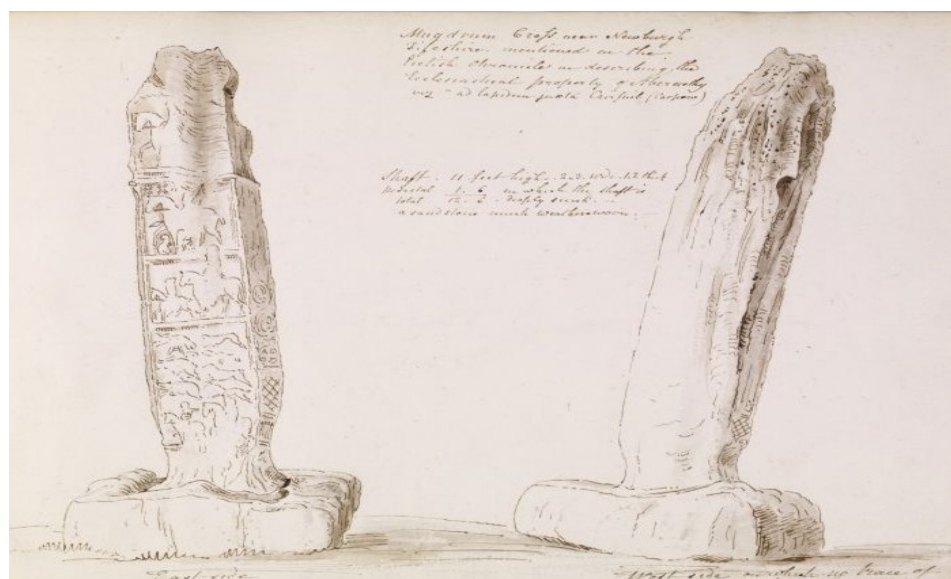 Mugdrum Cross near Newburgh
Fifeshire. mentioned in the
Pictish Chronicles in describing the
Ecclesiastical property of Abernethy
viz "ad lapidem juxta Cairfuil (Carpow)
Shaft. 11 feet high. 2.2. wide. 1.2 thick
1. 6 in which the shaft is
total 12. 6 deeply sunk.
a sandstone much weatherworn.
East side
West side on which no trace of